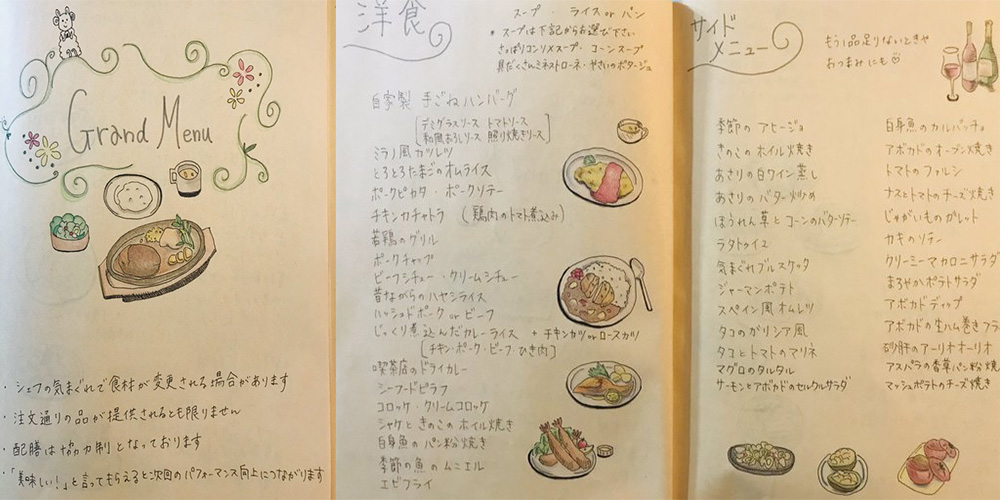 Grand Menu
・シェフの気まぐれで食材が変更される場合があります
・注文通りの品が提供されるとも限りません
・配膳は協力制となっております
・「美味しい!」と言ってもらえると次回のパフォーマンス向上につながります
洋食
スープ ・ ライス or パン
* スープは下記からお選び下さい
さっぱりコンソメスープ・コーンスープ
具だくさんミネストローネ・やさいのポタージュ
自家製 手ごねハンバーグ
デミグラスソース トマトソース
和風おろしソース 照り焼きソース
ミラノ風カツレツ
とろとろたまごのオムライス
ポークピカタ・ポークソテー
チキンカチャトラ (鶏肉のトマト煮込み)
若鶏のグリル
ポークチャップ
ビーフシチュー・クリームシチュー
昔ながらのハヤシライス
ハッシュドポーク or ビーフ
じっくり煮込んだカレーライス + チキンカツ or ロースカツ
[チキン・ポーク・ビーフ・ひき肉]
喫茶店のドライカレー
シーフードピラフ
コロッケ・クリームコロッケ
シャケときのこのホイル焼き
白身魚のパン粉焼き
季節の魚のムニエル
エビフライ
サイド
メニュー
もう1品足りないときや
おつまみにも♡
季節のアヒージョ
きのこのホイル焼き
あさりの白ワイン蒸し
あさりのバター炒め
ほうれん草とコーンのバターソテー
ラタトゥイユ
気まぐれブルスケッタ
ジャーマンポテト
スペイン風オムレツ
タコのガリシア風
タコとトマトのマリネ
マグロのタルタル
サーモンとアボカドのセルクルサラダ
白身魚のカルパッチョ
アボカドのオーブン焼き
トマトのファルシ
ナスとトマトのチーズ焼き
じゃがいものガレット
カキのソテー
クリーミーマカロニサラダ
まろやかポテトサラダ
アボカドディップ
アボカドの生ハム巻きフラ
砂肝のアーリオオーリオ
アスパラの香草パン粉焼
マッシュポテトのチーズ焼き